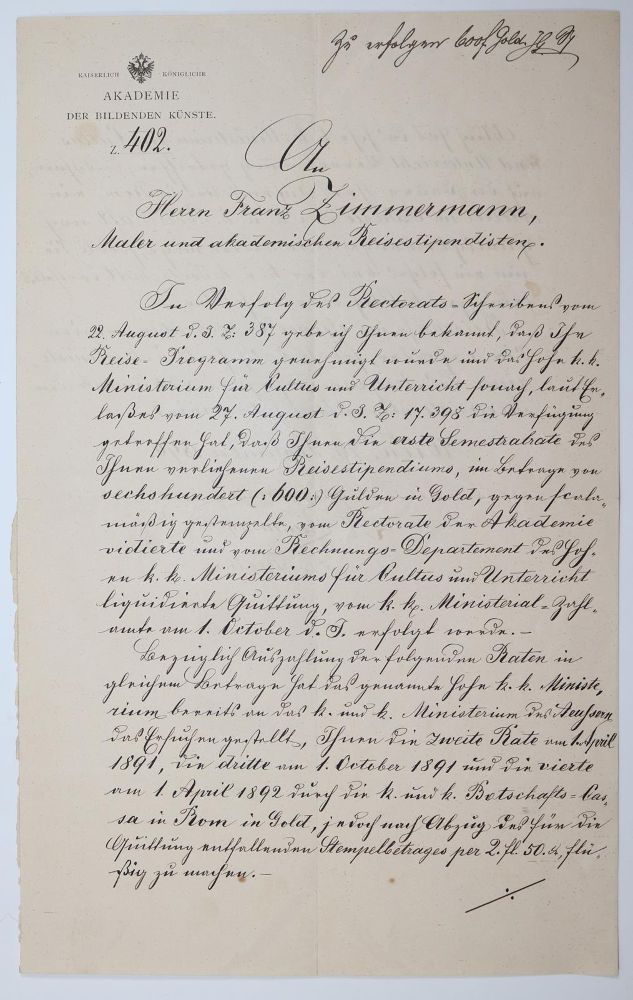 Zu erfolgen 600f. Gold.
KAISERLICH KÖNIGLICHE
AKADEMIE
DER BILDENDEN KÜNSTE.
Z. 402.
An
Herrn Franz Zimmermann,
Maler und akademischen Reisestipendisten.
In Verfolg des Rectorats-Schreibens vom
22. August d. J. Z: 387 gebe ich Ihnen bekannt, daß Ihr
Reise-Programm genehmigt wurde und das hohe k. k.
Ministerium für Cultus und Unterricht sonach, laut Er-
laßes vom 27. August d. J. Z: 17.398 die Verfügung
getroffen hat, daß Ihnen die erste Semestralrate des
Ihnen verliehenen Reisestipendiums, im Betrage von
sechshundert (:600:) Gulden in Gold, gegen scala-
mäßig gestempelte, vom Rectorate der Akademie
vidierte und vom Rechnungs-Departement des hoh-
en k. k. Ministeriums für Cultus und Unterricht
liquidierte Quittung, vom k. k. Ministerial-Zahl-
amte am 1. October d. J. erfolgt werde. –
Bezüglich Auszahlung der folgenden Raten in
gleichem Betrage hat das genannte hohe k. k. Ministe-
rium bereits an das k. und k. Ministerium des Aeussern
das Ersuchen gestellt, Ihnen die zweite Rate am 1. April
1891, die dritte am 1. October 1891 und die vierte
am 1. April 1892 durch die k. und k. Botschafts-Cas-
sa in Rom in Gold, jedoch nach Abzug des für die
Quittung entfallenden Stempelbetrages per 2. fl. 50. kr, flü-
ßig zu machen. –